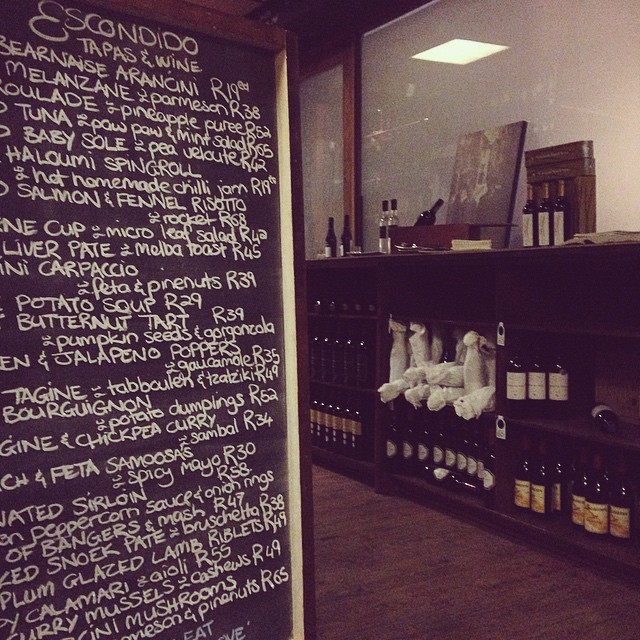 ESCONDIDO
TAPAS & WINE
BEARNAISE ARANCINI R19
MELANZANE parmeson R38
OULADE pineapple puree R52
TUNA paw paw & mint salad R65
BABY SOLE pea veloute R42
HALOUMI SPINGROLL
hot homemade chilli jam R19
SALMON & FENNEL RISOTTO
rocket R68
NE CUP micro leaf salad R42
LIVER PATE melba toast R45
INI CARPACCIO
feta & pinenuts R39
POTATO SOUP R29
BUTTERNUT TART R39
pumpkin seeds & gorgonzola
EN & JALAPENO POPPERS
guacamole R35
TAGINE tabbouleh & tzatziki R49
BOURGUIGNON
potato dumplings R62
GINE & CHICKPEA CURRY
sambal R34
CH & FETA SAMOOSAS
spicy mayo R30
NATED SIRLOIN R58
en peppercorn sauce & onion rings
OF BANGERS & mash R47
KED SNOEK PATE bruschetta R38
PLUM GLAZED LAMB RIBLETS R49
Y CALAMARI aioli R55
CURRY MUSSELS cashews R49
CINI MUSHROOMS
meson & pinenuts R65
EAT
OVE'